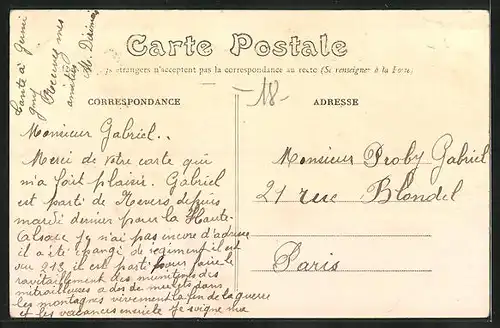 Carte Postale
étrangers n'acceptent pas la correspondance au recto (Se renseigner à la Poste)
CORRESPONDANCE
ADRESSE
-18-
Monsieur Gabriel..
Merci de votre carte qui
m'a fait plaisir. Gabriel
est parti de Nevers depuis
mardi dernier pour la Haute-
Alsace je n'ai pas encore d'adresse
il a été changé de régiment il est
au 213 il est parti pour faire le
ravitaillement des munitions des
mitrailleuses a dos de mulets dans
les montagnes vivement la fin de la guerre
et les vacances ensuite je soigne ma
santé à
Recevez mes
amitiés
Monsieur Proby Gabriel
21 rue Blondel
Paris